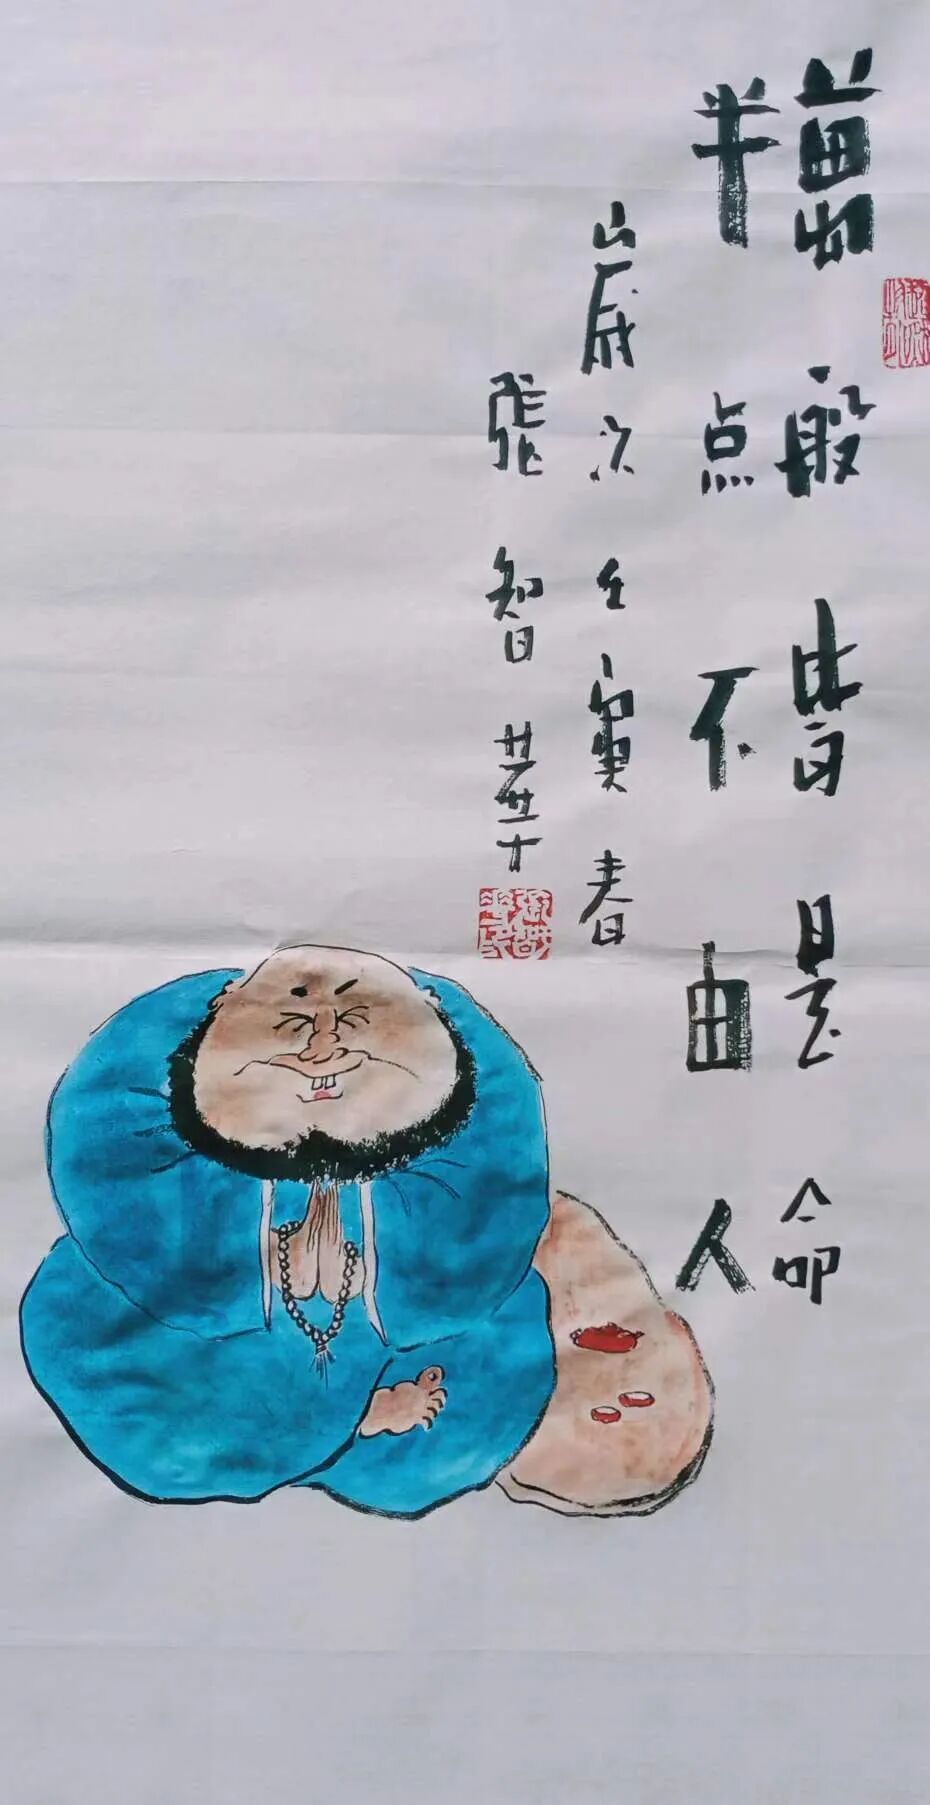 萬般皆是命
半点不由人
歲次壬寅春
張智華